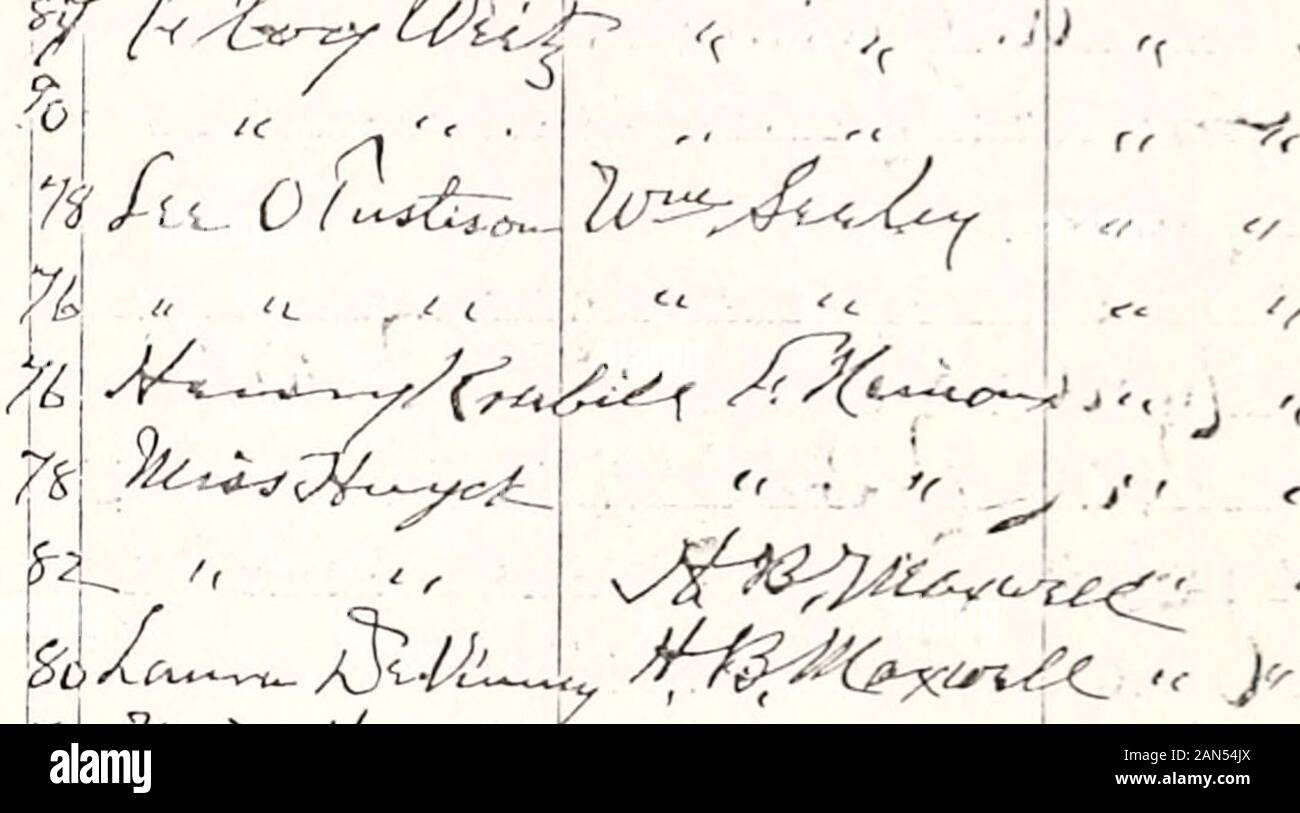 " " " "
90 " " " " " "
78 Lee O Tustison Wm Seeley " "
76 " " " " " " "
76 Henry Krehbill F. " "
78 Miss Huyck " " " "
82 " " H. B. Maxwell "
80 Laura DeVinney H. B. Maxwell " "
alamy
Image ID: 2AN54JX
www.alamy.com